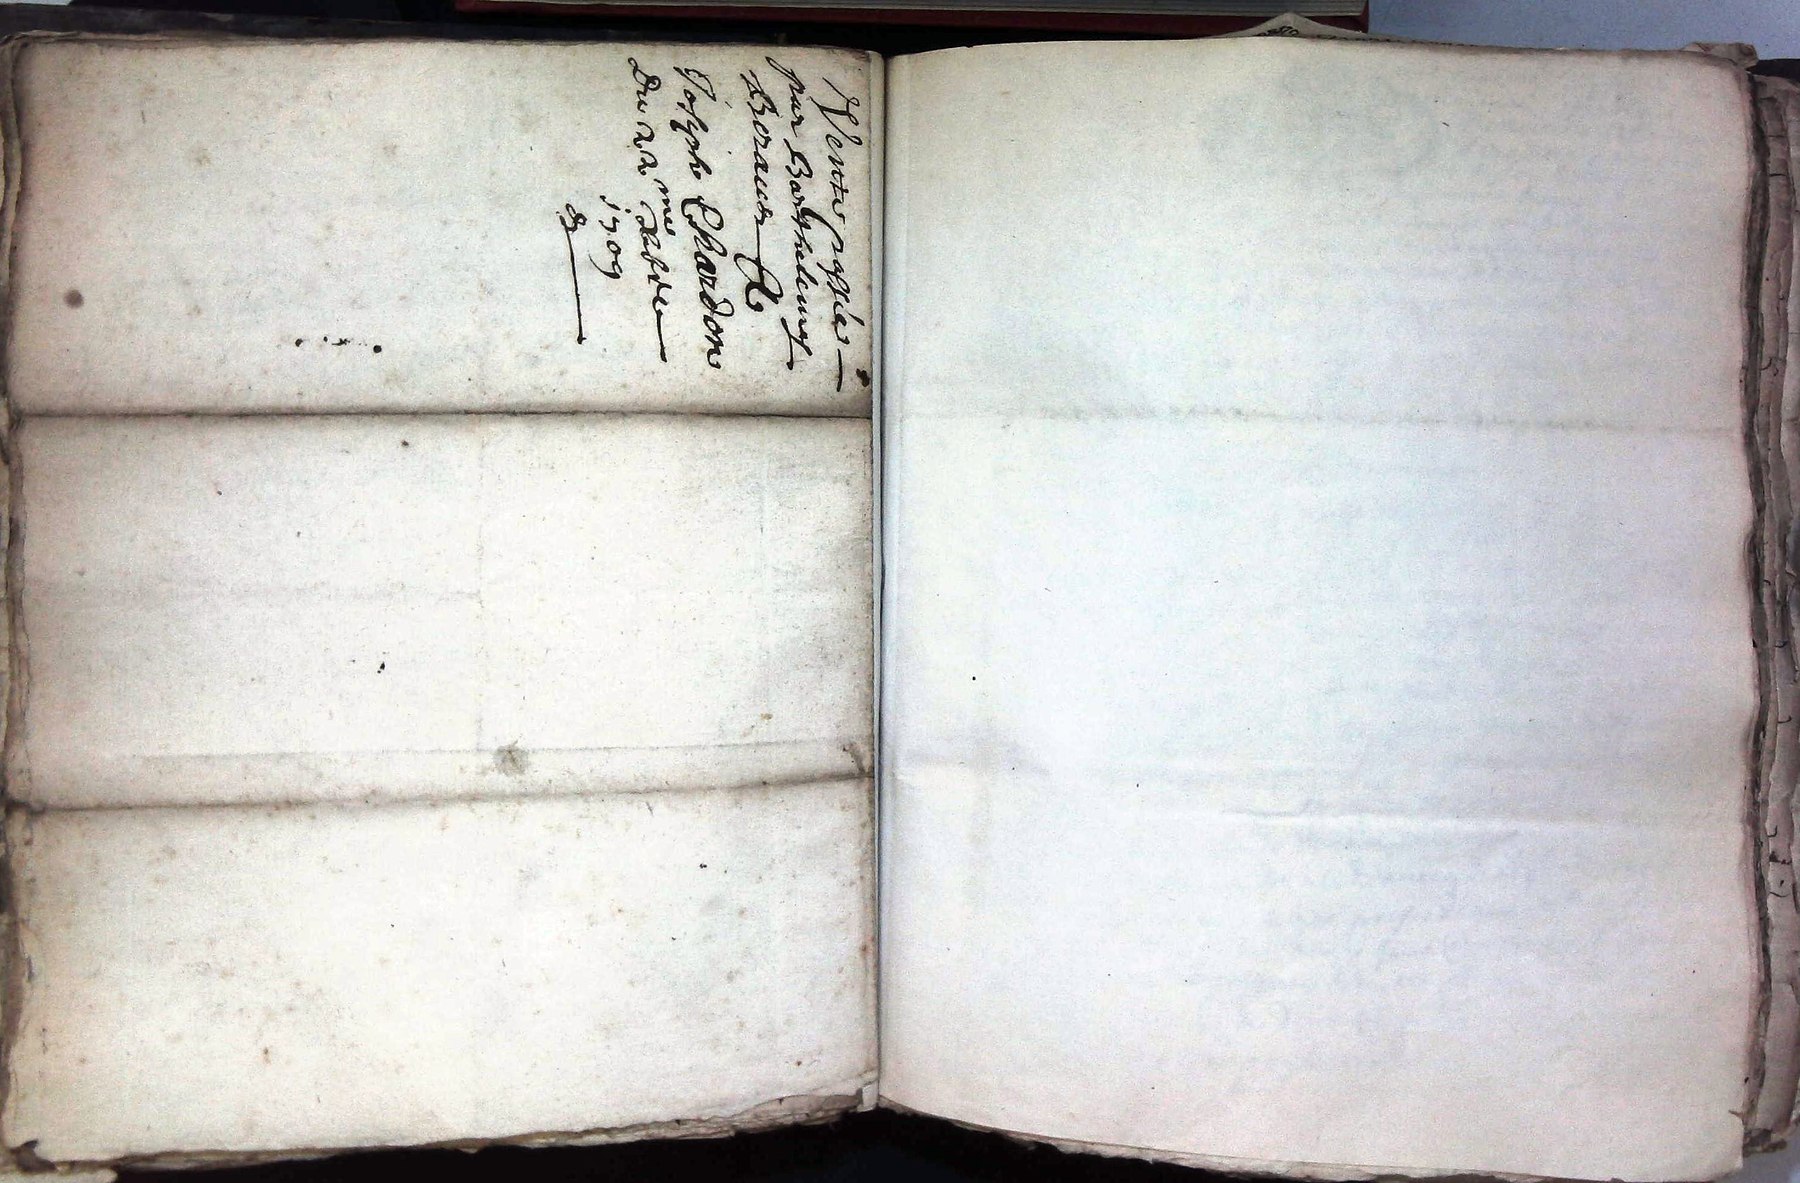 Vente passée
par Barthelemy
Beraud A
Joseph Chardon
Du 22 me xbre
1709